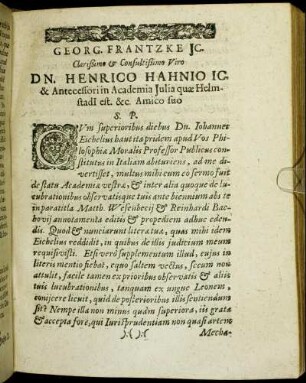 GEORG. FRANTZKE JC.
Clarissimo & Consultissimo Viro
DN. HENRICO HAHNIO IC.
& Antecessori in Academia Julia quæ Helm-
stadI est. &c. Amico suo
S. P.
CVm superioribus diebus Dn. Johannes
Eichelius haut ita pridem apud Vos Phi-
losophiæ Moralis Professor Publicus con-
stitutus in Italiam abituriens, ad me di-
vertisset, multus mihi cum eo sermo fuit
de statu Academiæ vestræ, & inter alia quoque de lu-
cubrationibus observatisque tuis ante biennium abs te
in paratitla Matth. Wesenbecij & Reinhardi Bac-
hovij annotamenta editis & propediem adhuc eden-
dis. Quod & nunciarunt literæ tuæ, quas mihi idem
Eichelius reddidit, in quibus de illis judicium meum
requisivisti. Etsi verò supplementum illud, cujus in
literis mentio fiebat, equo saltem vectus, secum non
attulit, facile tamen ex prioribus observatis & aliis
tuis lucubrationibus, tanquam ex ungue Leonem,
conjicere licuit, quid de posterioribus illis sentiendum
sit? Nempe illa non minus quàm superiora, iis grata
& accepta fore, qui Jurisprudentiam non quasi artem
)( )(
Mecha-